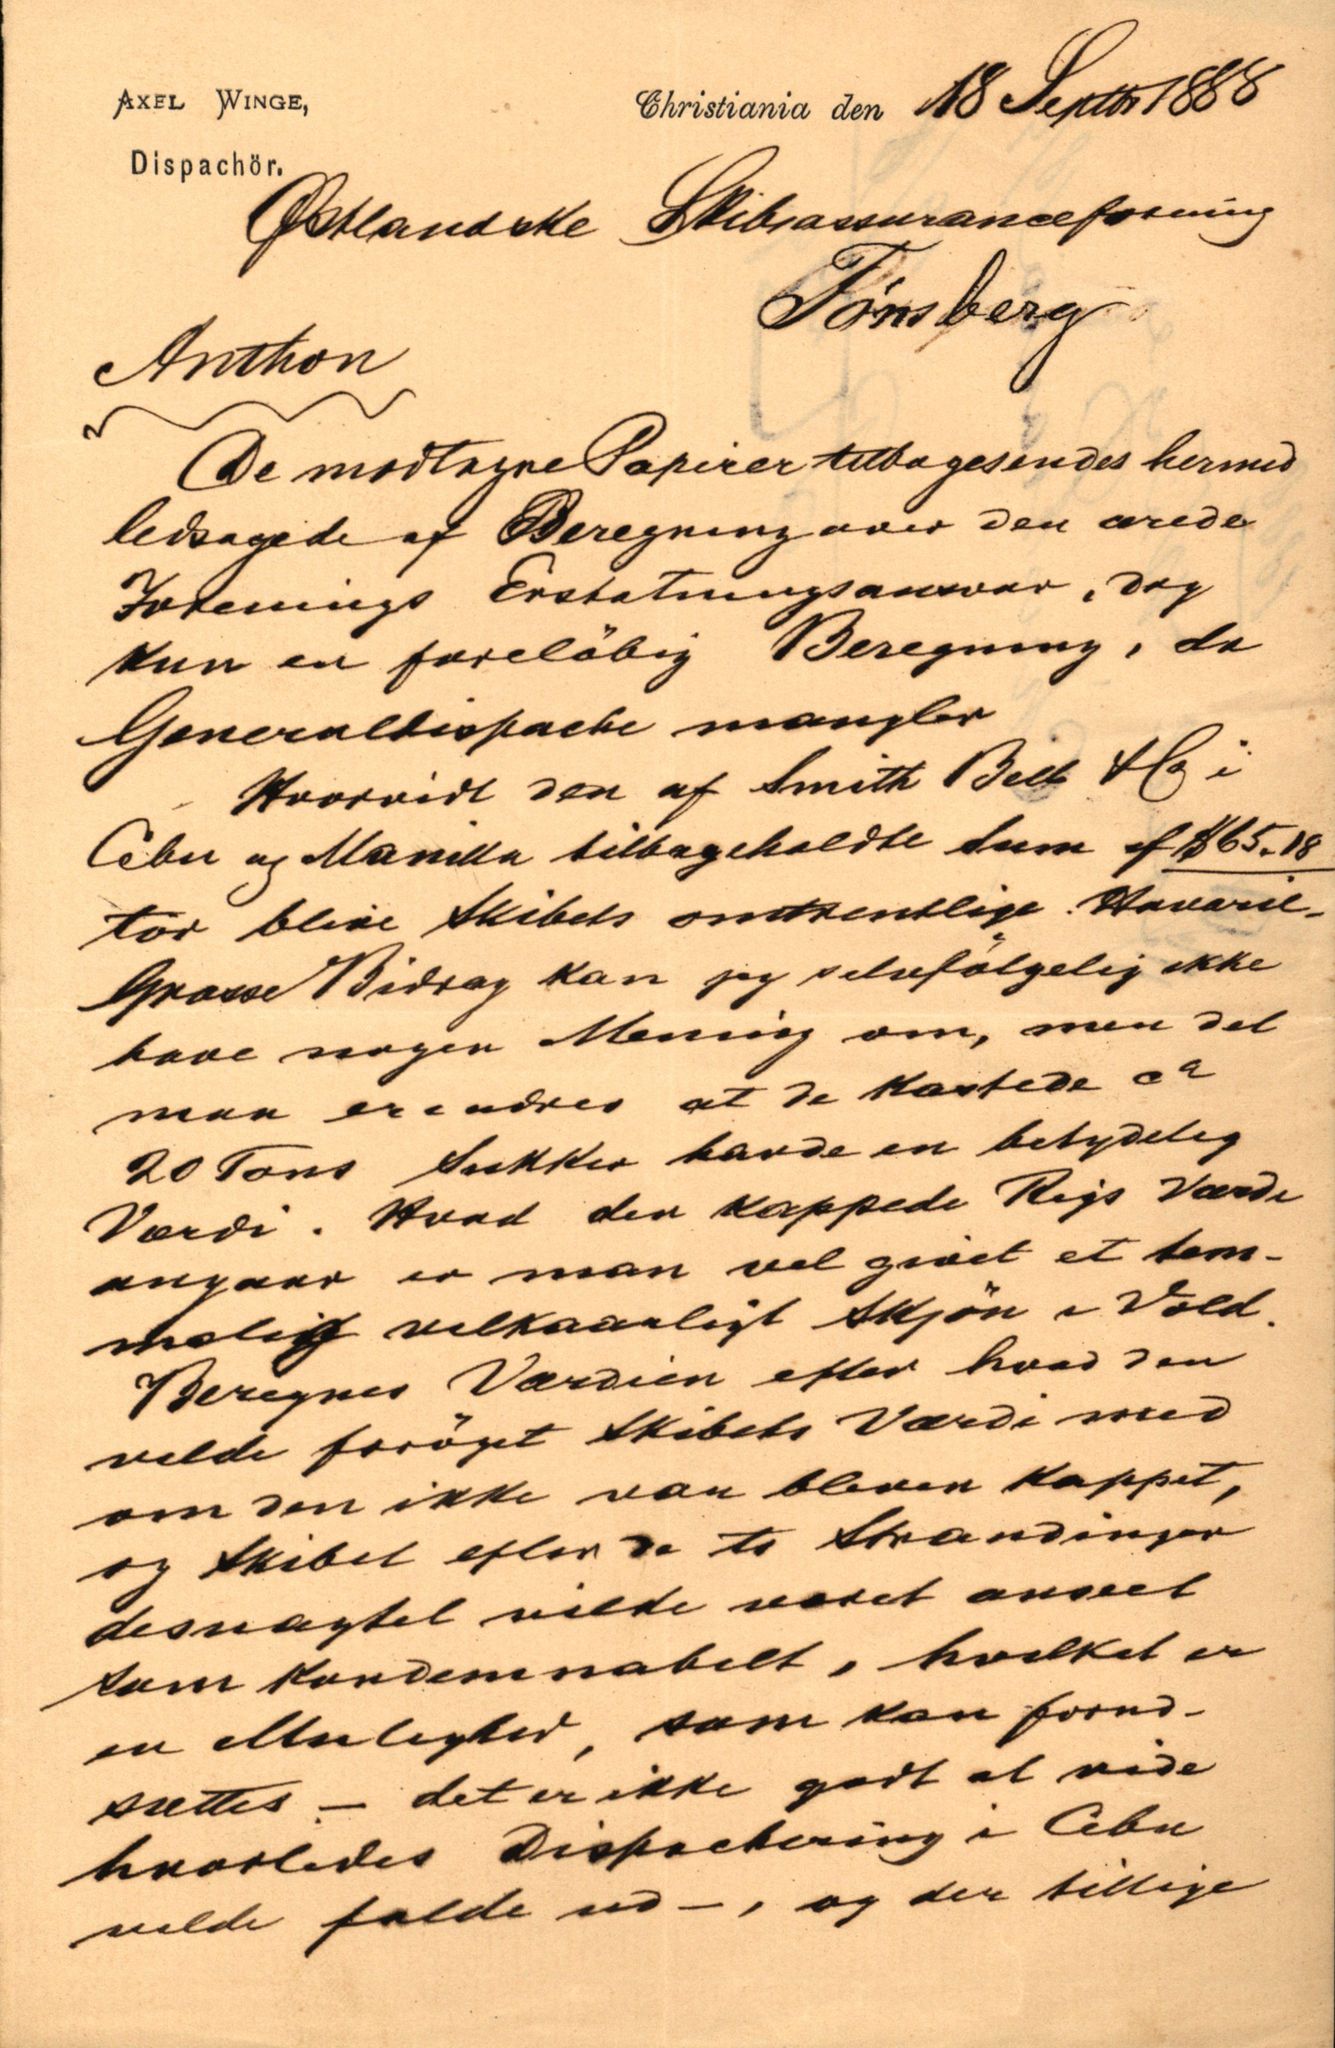 AXEL WINGE,
Dispachör.
Christiania den 18 Septbr 1888
Østlandske Skibsassuranceforening
Tönsberg
Anthon
De modtagne Papirer tilbagesendes hermed
ledsagede af Beregning over den ærede
Forenings Erstatningsansvar, dog
kun en foreløbig Beregning, da
Generaldispache mangler
Hvorvidt den af Smith Bell & Co i
Cebu og Manilla tilbageholdte Sum af $65.18
tör blive Skibets omtrentlige Havari-
Grosse Bidrag kan jeg selvfölgelig ikke
have nogen Mening om, men det
maa erindres at de kastede ca
20 Tons Sukker havde en betydelig
Værdi. Hvad den kappede Rigs Værdi
angaar er man vel givet et tem-
melig vilkaarligt Skjön i Vold.
Beregnes Værdien efter hvad den
vilde foröget Skibets Værdi med
om den ikke var bleven kappet,
og Skibet efter de to Strandinger
desuagtet vilde været anseet
som kondemnabelt, hvilket er
en Mulighed, som kan forud-
sættes – det er ikke godt at vide
hvorledes Dispachering i Cebu
vilde falde ud –, og der tillige